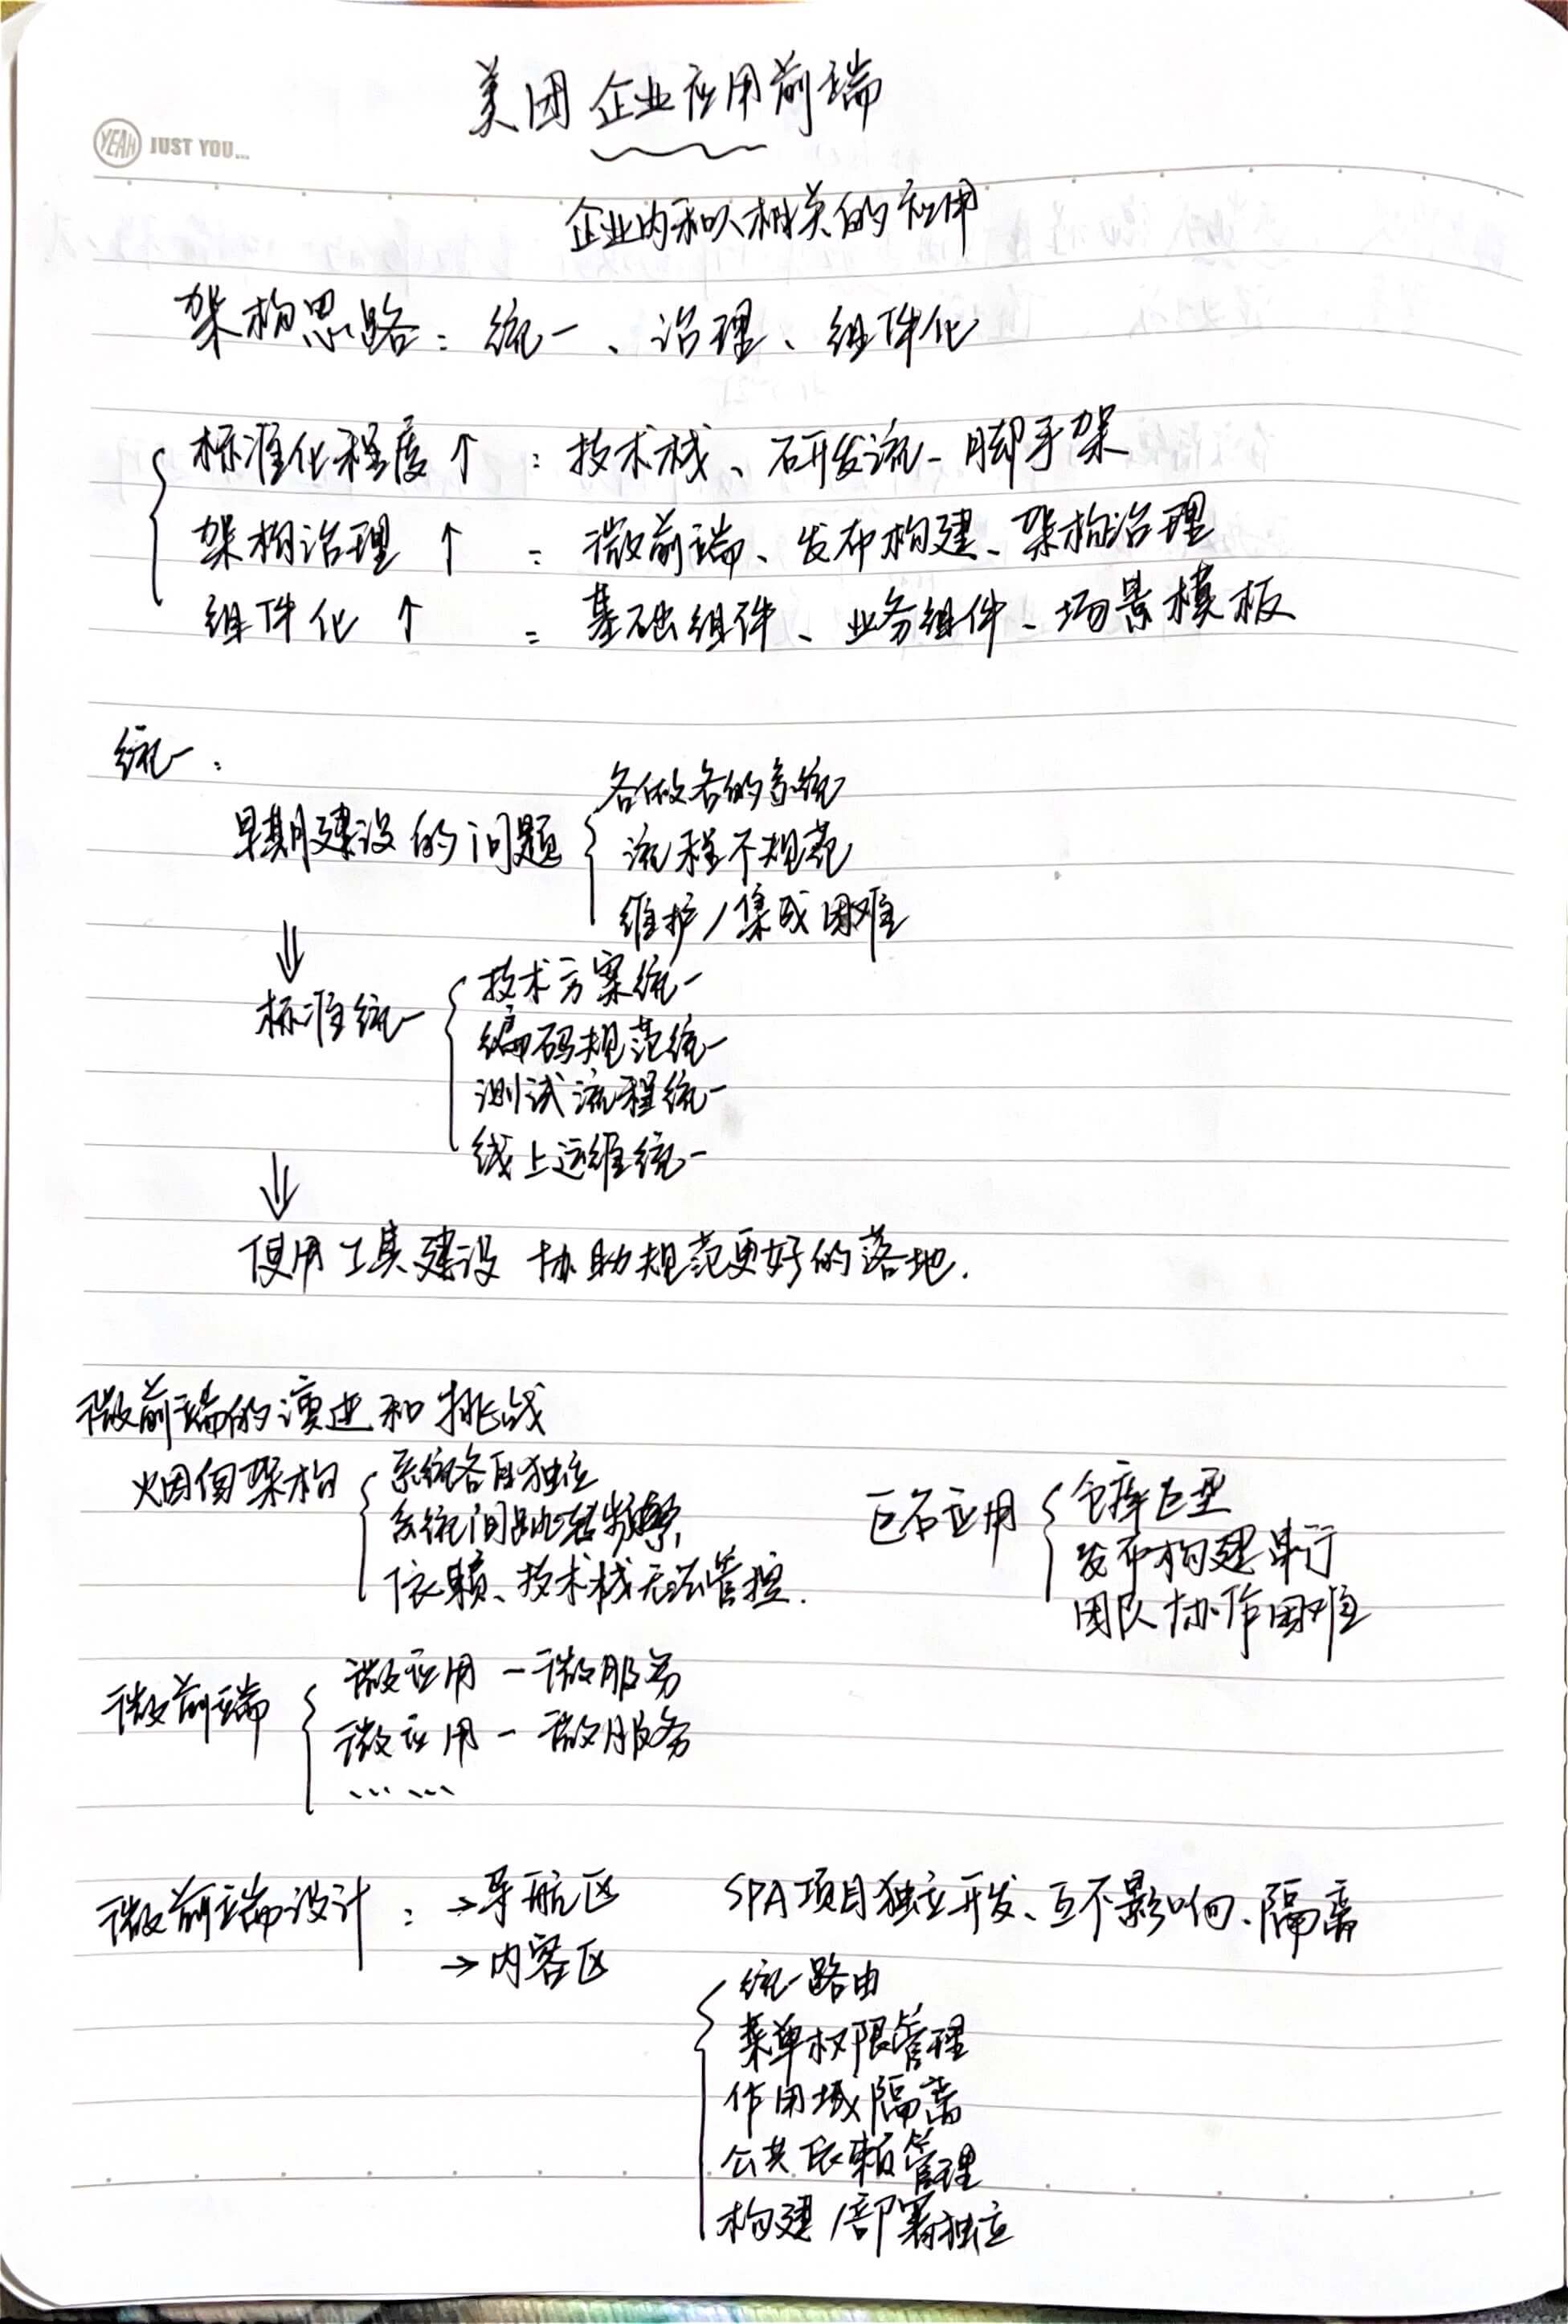 美团企业应用前端
YEAH JUST YOU...
企业内和人相关的应用
架构思路：统一、治理、组件化
标准化程度↑：技术栈、研发流、脚手架
架构治理↑：微前端、发布构建、架构治理
组件化↑：基础组件、业务组件、场景模板
统一：
早期建设的问题
各做各的系统
流程不规范
维护/集成困难
⇓
标准统一
技术方案统一
编码规范统一
测试流程统一
线上运维统一
⇓
使用工具建设 协助规范更好的落地.
微前端的演进和挑战
烟囱架构
系统各自独立
系统间跳转频繁
依赖、技术栈无法管控.
巨石应用
仓库巨型
发布构建串行
团队协作困难
微前端
微应用－微服务
微应用－微服务
……
微前端设计：→导航区
→内容区
SPA项目独立开发、互不影响、隔离
统一路由
菜单权限管理
作用域隔离
公共依赖管理
构建/部署独立